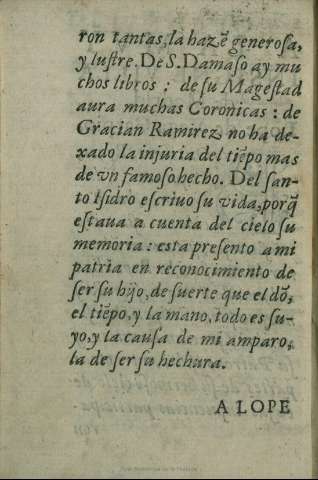 ron tantas, la hazẽ generosa,
y lustre. De S. Damaso ay mu
chos libros : de su Magestad
aura muchas Coronicas : de
Gracian Ramirez no ha de-
xado la injuria del tiẽpo mas
de vn famoso hecho. Del san-
to Isidro escriuo su vida, porq̃
estaua a cuenta del cielo su
memoria : esta presento a mi
patria en reconocimiento de
ser su hijo, de suerte que el dõ,
el tiẽpo, y la mano, todo es su-
yo, y la causa de mi amparo,
la de ser su hechura.
A LOPE